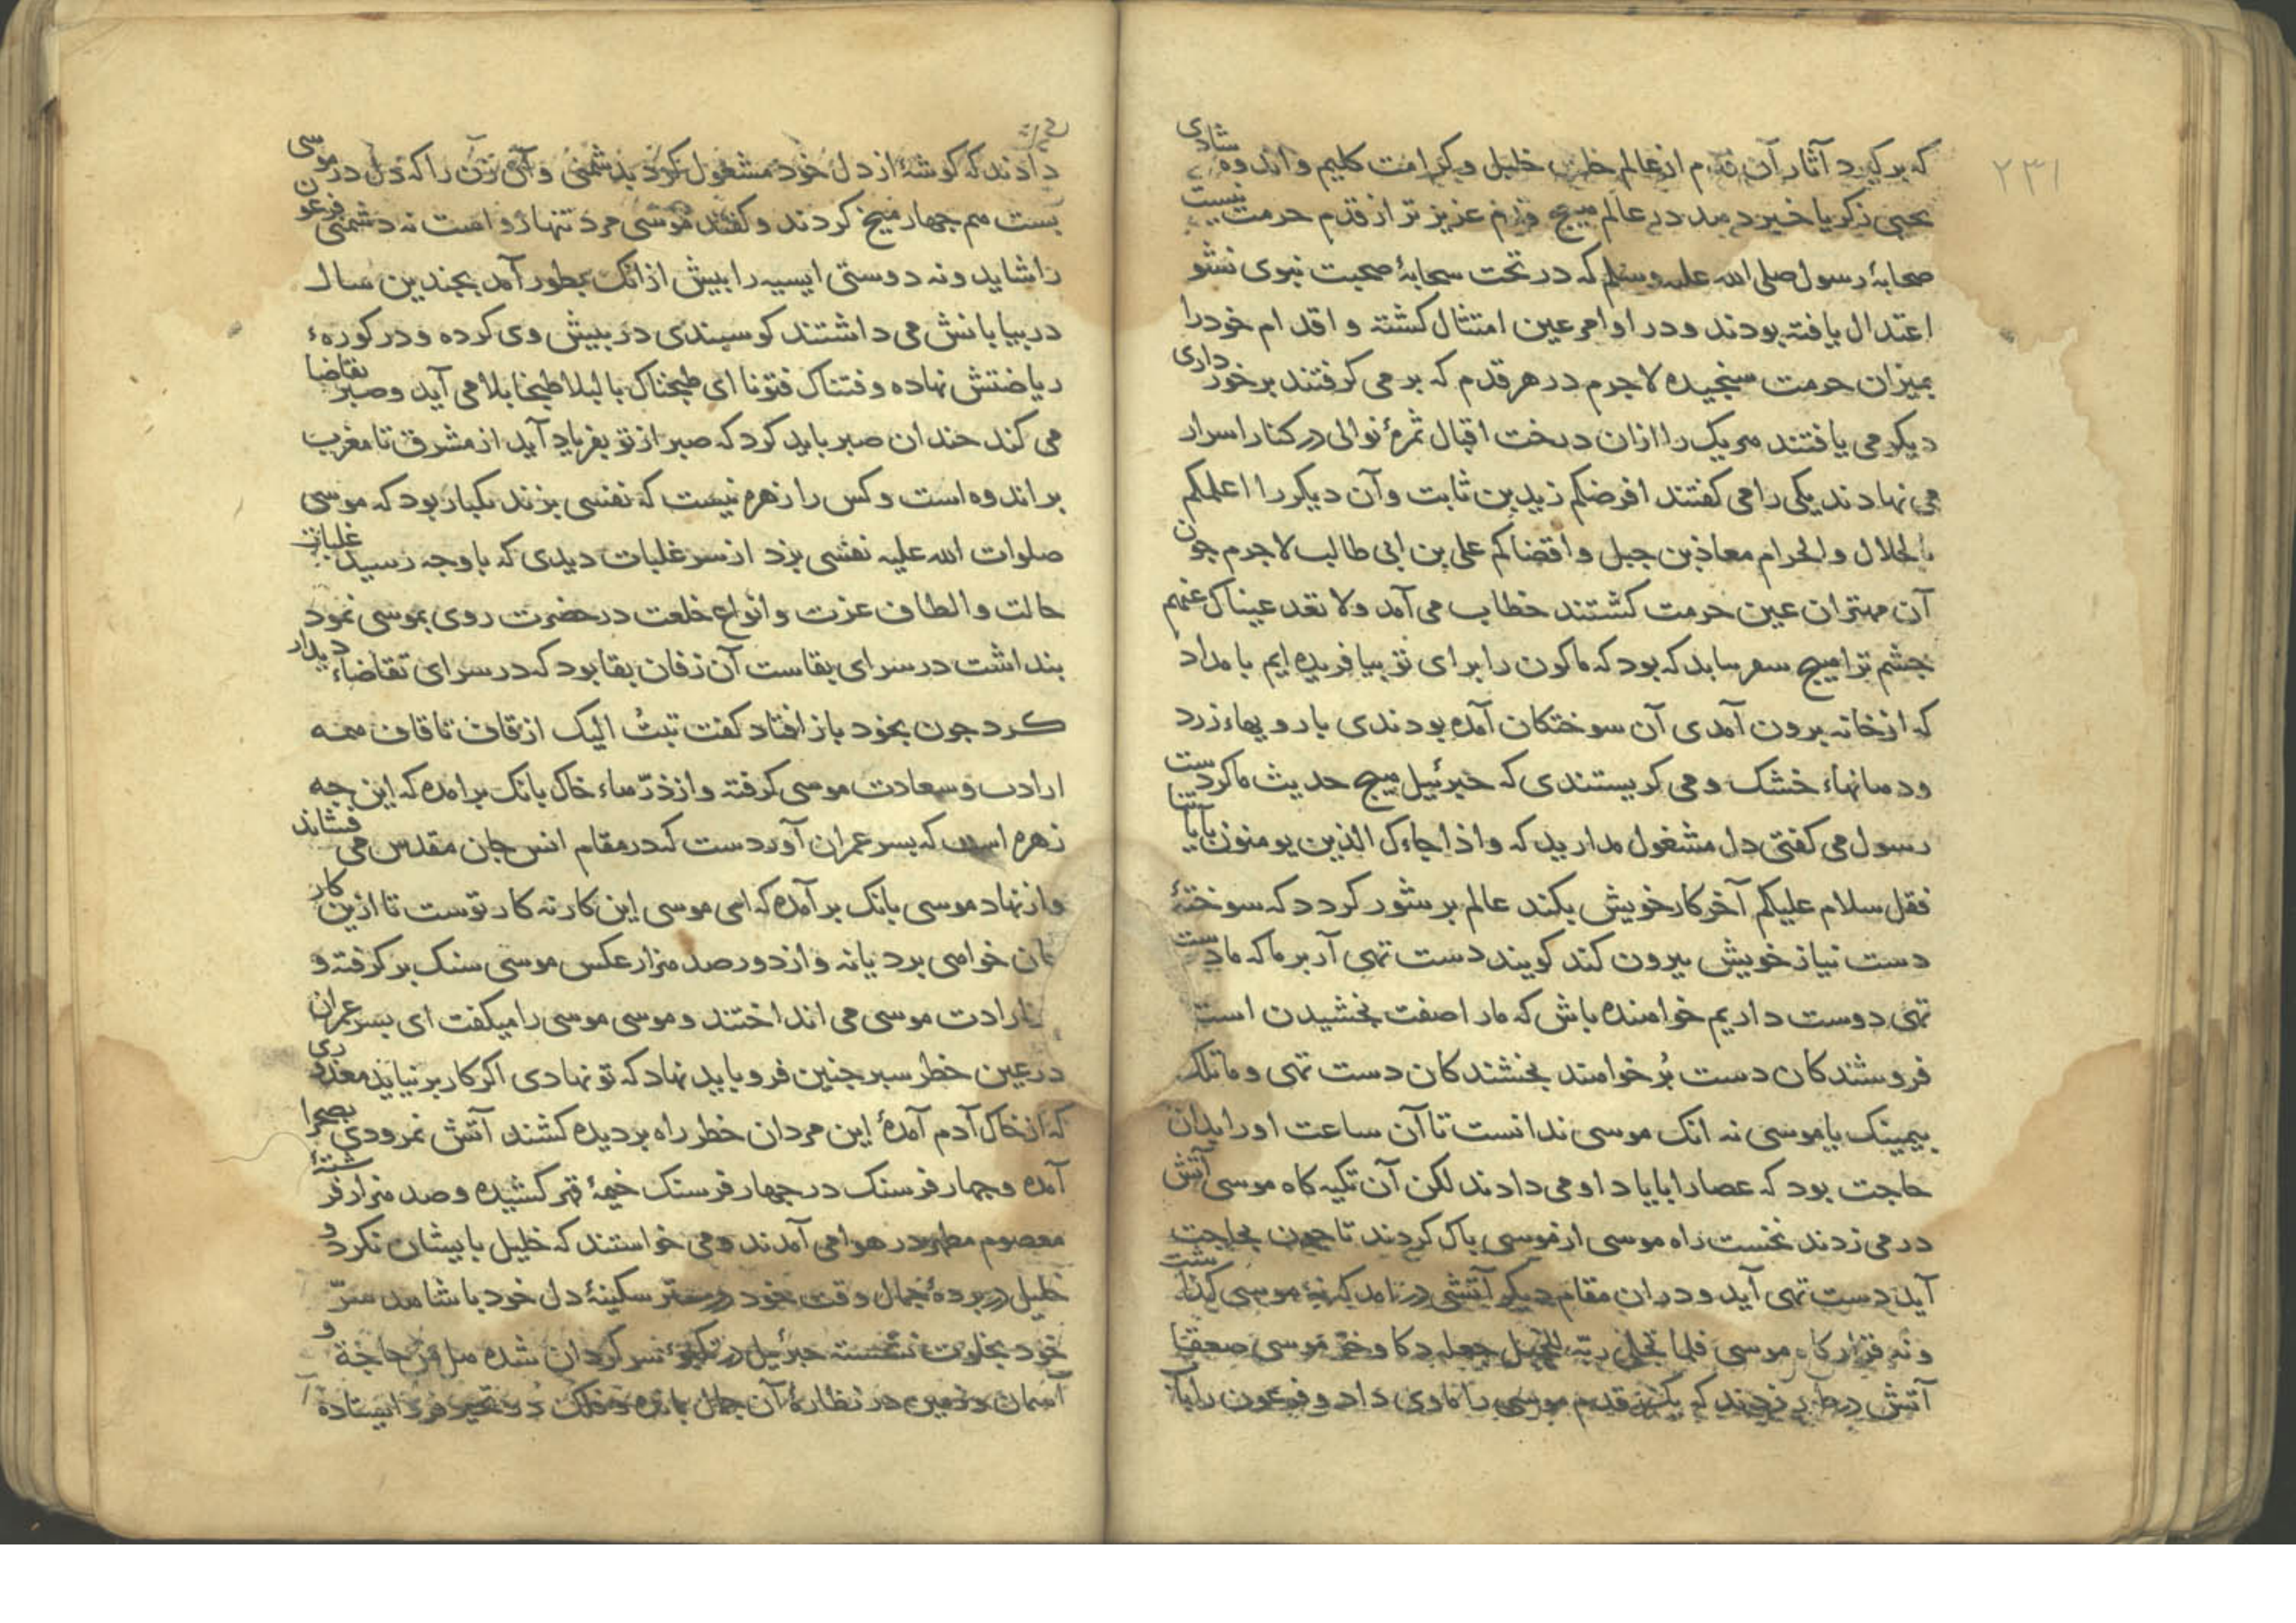 ۲۳۱
که برکیرد آثار آن قدم از عالم خلت خلیل و کرامت کلیم و اندوه شادی
یحیی زکریا خبر دهد در عالم هیچ قدم عزیزتر از قدم حرمت نیست
صحابهٔ رسول صلی الله علیه وسلم که در تحت سحابهٔ صحبت نبوی نشو
اعتدال یافته بودند و در اوامر عین امتثال کشته و اقدام خود را
بمیزان حرمت سنجیده لاجرم در هر قدم که بر می کرفتند برخورداری
دیکر می یافتند هریک را ازان درخت اقبال ثمرهٔ نوالی در کنار اسرار
می نهادند یکی را می کفتند افرضکم زید بن ثابت و آن دیکر را اعلمکم
بالحلال والحرام معاذ بن جبل و اقضاکم علی بن ابی طالب لاجرم چون
آن مهتران عین حرمت کشتند خطاب می آمد ولا تعد عیناک عنهم
چشم ترا هیچ که بود که ما کون را برای تو بیافریده ایم بامداد
که از خانه برون آمدی آن سوختکان آمده بودندی با رویهاء زرد
و دهانهاء خشک و می کریستندی که جبرئیل هیچ حدیث ما کردست
رسول می کفتی دل مشغول مدارید که واذا جاءک الذین یومنون بآیاتنا
فقل سلام علیکم آخر کار خویش بکند عالم پر شور کردد که سوختهٔ
دست نیاز خویش بیرون کند کویند دست تهی آر بر ما که ما دست
تهی دوست داریم خواهنده باش که ما را صفت بخشیدن است
فروشندکان دست پُر خواهند بخشندکان دست تهی وما تلک
بیمینک یا موسی نه انک موسی ندانست تا آن ساعت او را بدان
حاجت بود که عصا را با یاد او می دادند لکن آن تکیه کاه موسی آتش
در می زدند نخست راه موسی از موسی پاک کردند تا چون بحاجت
آید دست تهی آید و دران مقام دیکر آتشی در نامد که نه موسی کذاشت
و نه قرار کاه موسی فلما تجلی ربّه للجبل جعله دکا وخرّ موسی صعقا
آتش در زدند که یک قدم موسی را ماوی داد و فرعون را باک
دادند که کوشهٔ از دل خود مشغول کرد بدشمنی و آن زن را که دل در موسی
بست هم چهار میخ کردند و کفتند موسی مرد تنها رو است نه دشمنی فرعون
را شاید و نه دوستی ایسیه را بیش ازانک بطور آمد بچندین سال
در بیابانش می داشتند کوسبندی در بیش وی کرده و در کورهٔ
ریاضتش نهاده وفتناک فتونا ای طبخناک بالبلا طبخا بلا می آید و صبر تقاضا
می کند چندان صبر باید کرد که صبر از تو بفریاد آید از مشرق تا مغرب
بر اندوه است و کس را زهره نیست که نفسی بزند یکبار بود که موسی
صلوات الله علیه نفسی بزد از سر غلبات دیدی که باوجه رسید غلبات
حالت و الطاف عزت و انواع خلعت در حضرت روی بموسی نمود
بنداشت در سرای بقاست آن زفان بقا بود که در سرای تقاضاء دیدار
کرد چون بخود باز افتاد کفت تبتُ الیک از قاف تا قاف همه
ارادت و سعادت موسی کرفته و از ذرّهاء خاک بانک برامده که این چه
زهره است که بسر عمران آوردست که در مقام انس جان مقدس می فشاند
و از نهاد موسی بانک برآمده که ای موسی این کار نه کار توست تا ازین کار
جان خواهی برد یا نه و از دور صد هزار عکس موسی سنک بر کرفته و
بارادت موسی می انداختند و موسی موسی را میکفت ای بسر عمران
در عین خطر سبر چنین فرو باید نهاد که تو نهادی اکر کار بر نیاید معذوری
که از خاک آدم آمدهٔ این مردان خطر راه بر دیده کشند آتش نمرودی بصحرا
آمده و چهار فرسنک در چهار فرسنک خیمهٔ قهر کشیده و صد هزار فرشتهٔ
معصوم مطهر در هوا می آمدند و می خواستند که خلیل بایشان نکرد و
خلیل در بردهٔ جمال وقت خود در ستر سکینهٔ دل خود با شاهد سرّ
خود بخلوت نشسته جبرئیل در تکبوی سرکردان شده هل من حاجة و
آسمان و زمین در نظارهٔ آن جمال مانده و فلک در تحیر فرو ایستاده